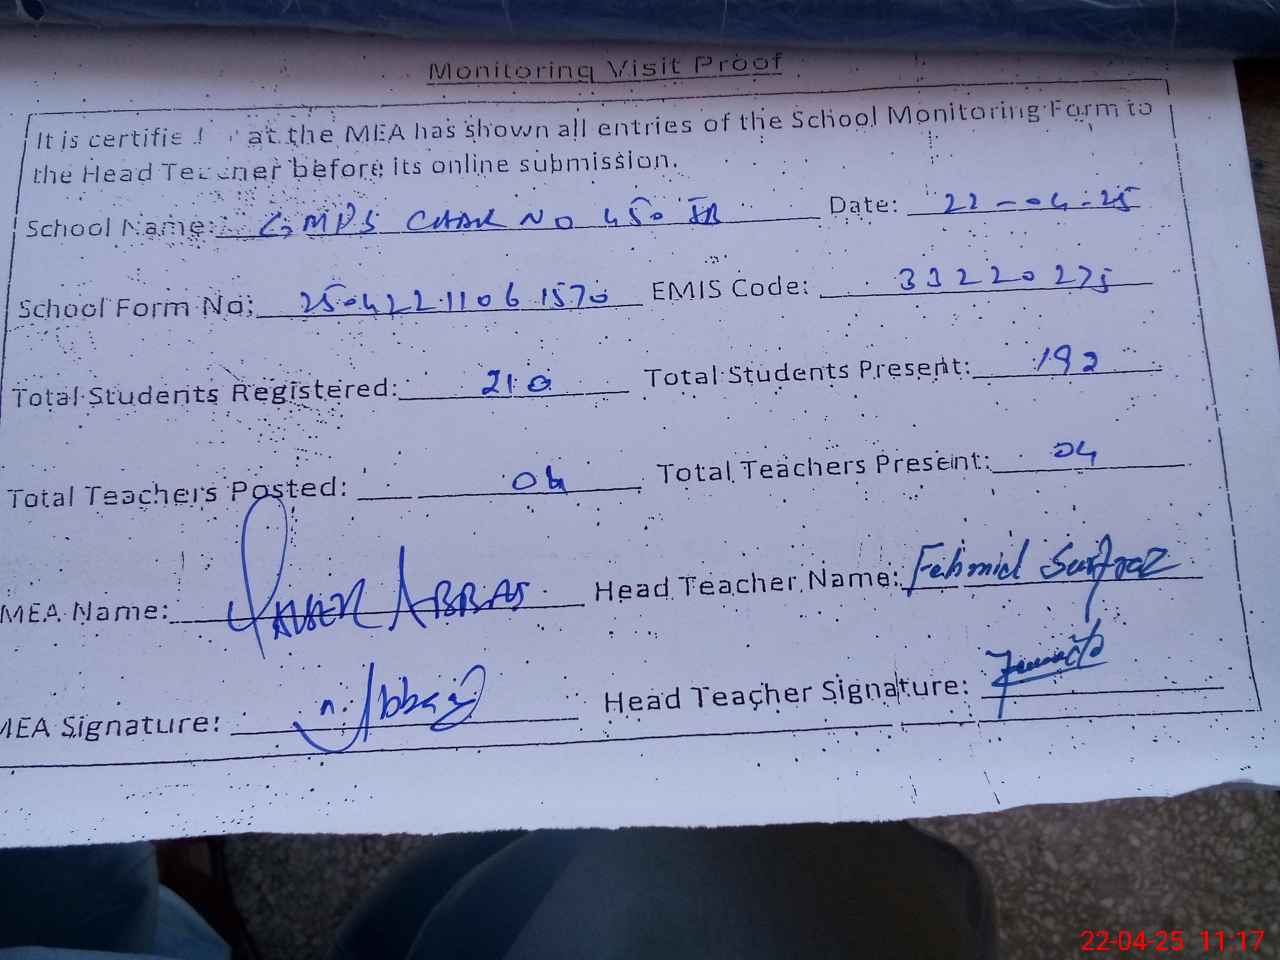 Monitoring Visit Proof
It is certifie at the MEA has shown all entries of the School Monitoring Form to
the Head Teacher before its online submission.
School Name: GMPS CHAK NO 450 JB Date: 22-04-25
School Form No: 25042211061570 EMIS Code: 33220275
Total Students Registered: 210 Total Students Present: 192
Total Teachers Posted: 04 Total Teachers Present: 04
MEA Name: ABBAS Head Teacher Name: Fehmid Sarfraz
MEA Signature: Abbas Head Teacher Signature:
22-04-25 11:17